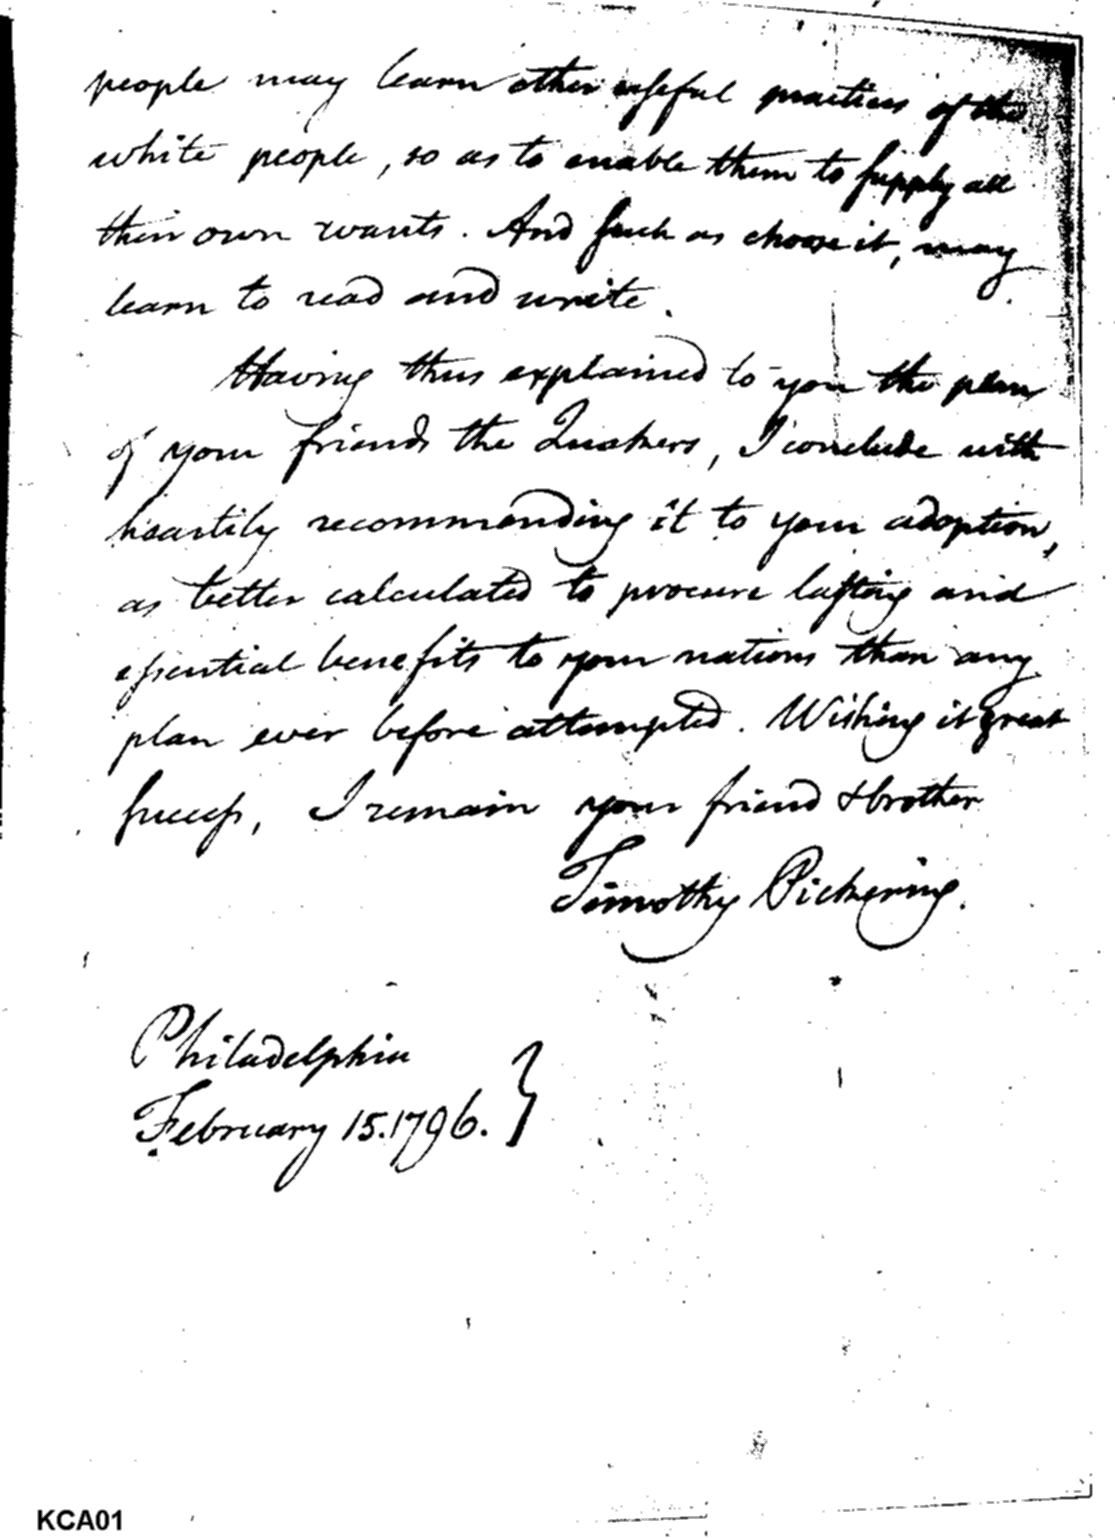 people may learn other useful practices of the
white people, so as to enable them to supply all
their own wants. And such as choose it, may
learn to read and write.
Having thus explained to you the plan
of your friends the Quakers, I conclude with
heartily recommending it to your adoption,
as better calculated to procure lasting and
essential benefits to your nations than any
plan ever before attempted. Wishing it great
success, I remain your friend & brother
Timothy Pickering.
Philadelphia
February 15. 1796.
KCA01